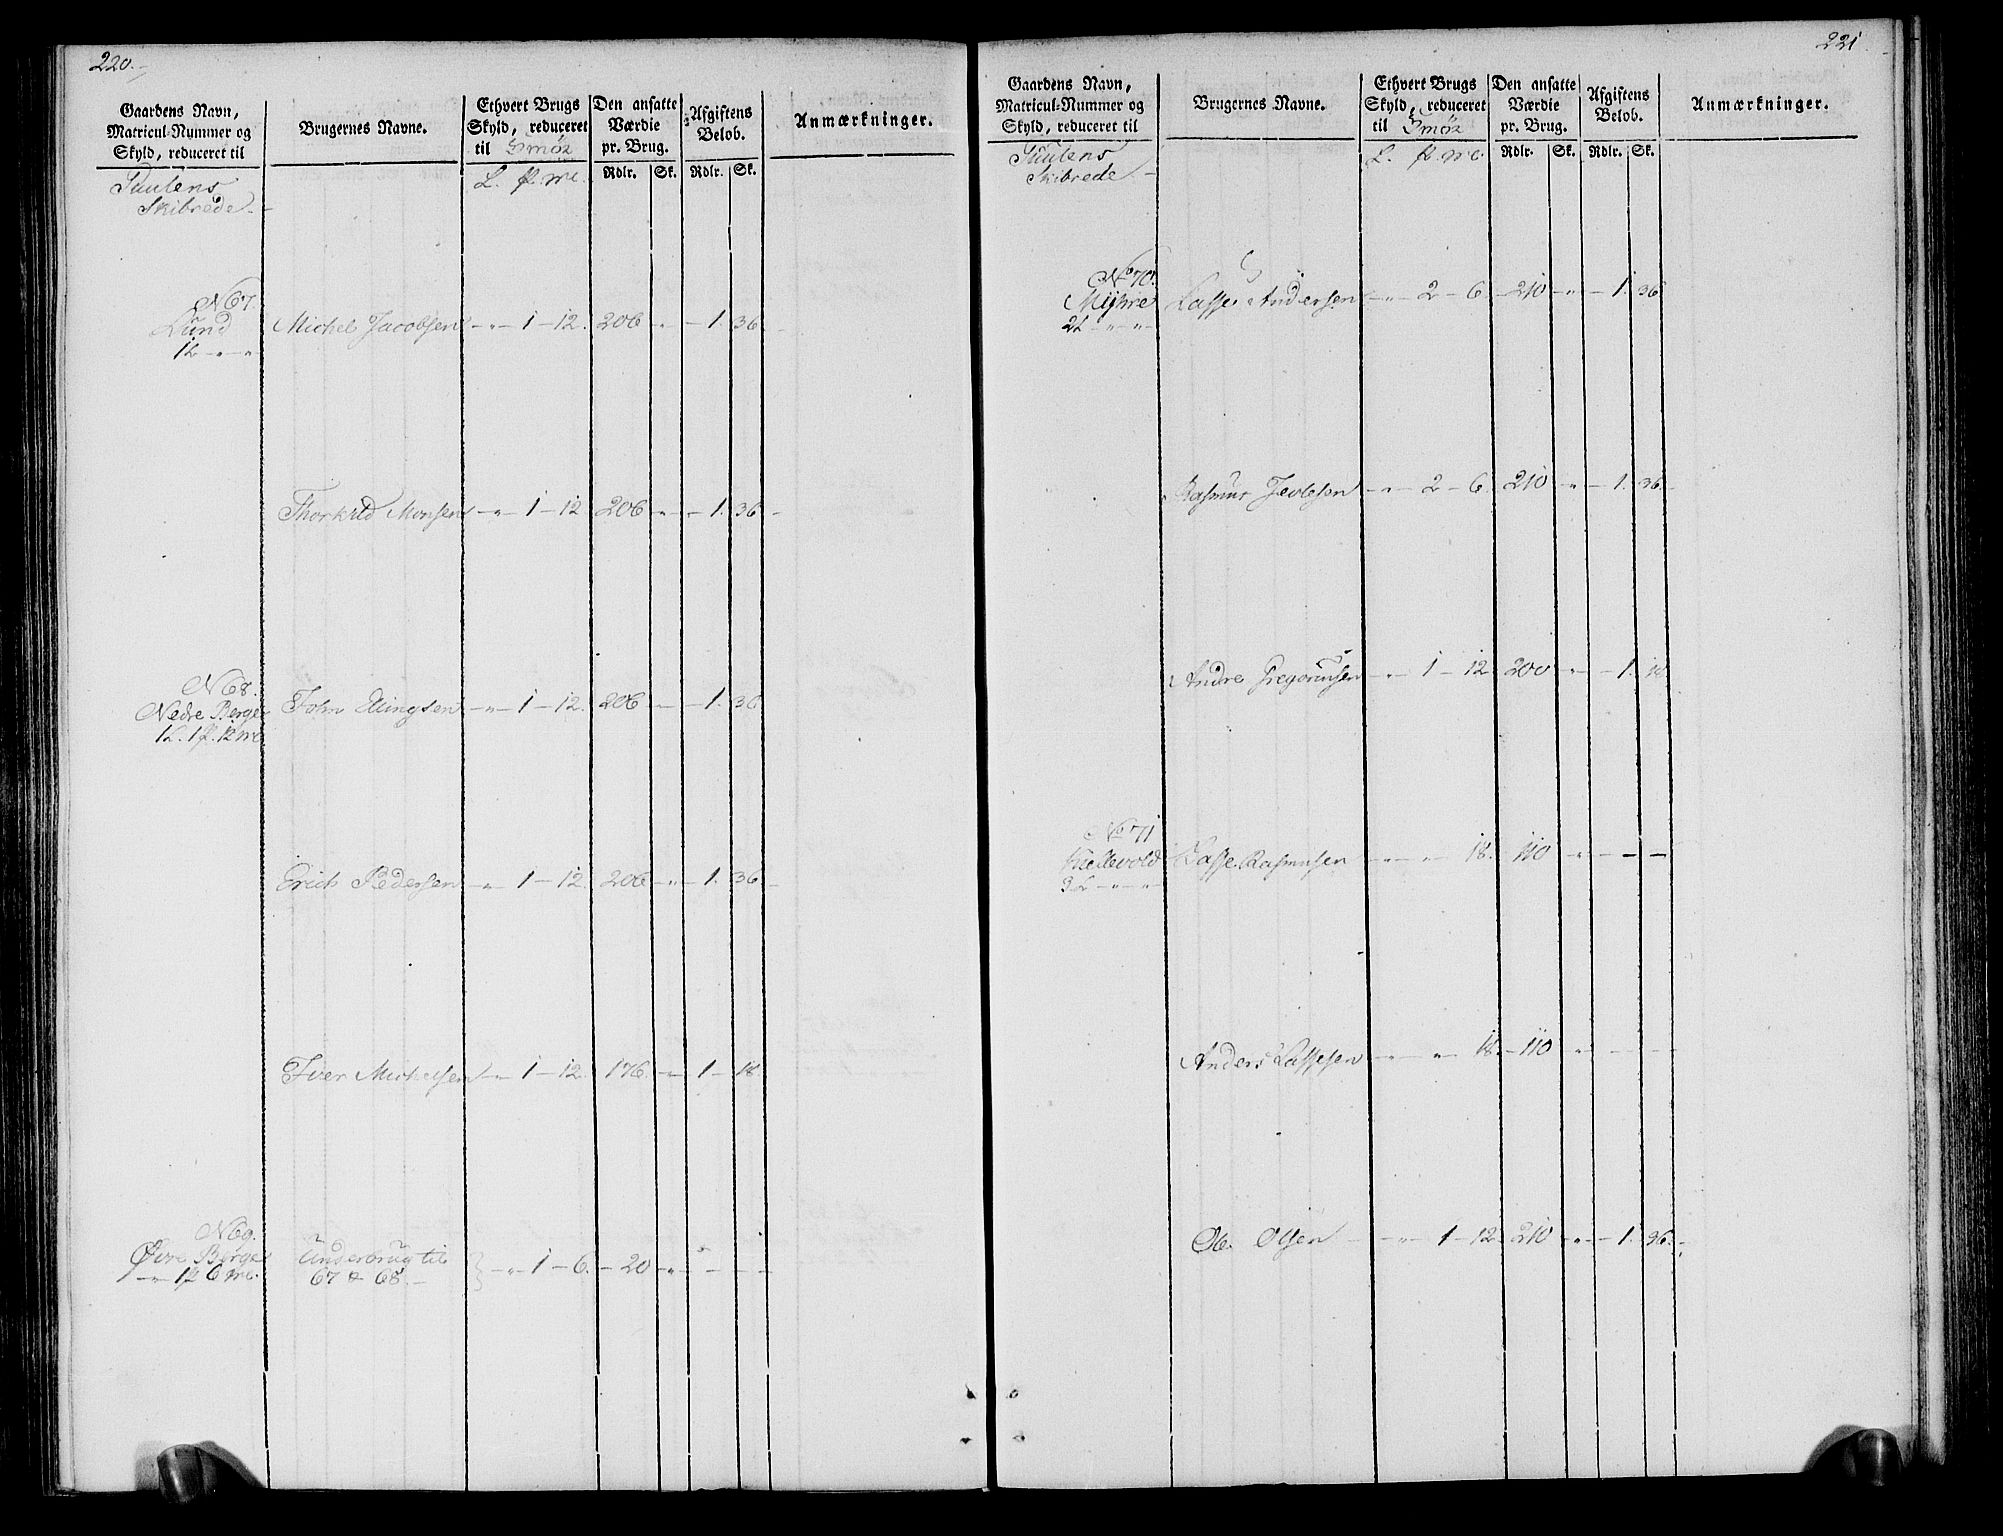 220.
Gaardens Navn,
Matricul-Nummer og
Skyld, reduceret til
Brugernes Navne.
Ethvert Brugs
Skyld, reduceret
til Smör
Den ansatte
Værdie
pr. Brug.
Afgiftens
Beløb.
Anmærkninger.
Rdlr. Sk. Rdlr. Sk.
Skibrede.
No 67.
Lund Michel Jacobsen - „ - 1 - 12. 206 - „ - 1. 36
1 L - „ - „
Thorkild Monsen - „ - 1 - 12 206 - „ - 1. 36 -
No 68.
Nedre Berge - „ - 1 - 12. 206 - „ - 1. 36
1 L. 1 p. 12 mc
Erich Pedersen - „ - 1 - 12. 206 - „ - 1. 36 -
Iver Michelsen - „ - 1 - 12. 176. - „ - 1 - 18
No 69.
Øvre Berge Underbrug til - „ - 1 - 6. - 20 - „ - - -
- „ - 1 p 6 mc. 67 & 68. -
221
Gaardens Navn,
Matricul-Nummer og
Skyld, reduceret til
Brugernes Navne.
Ethvert Brugs
Skyld, reduceret
til Smör
Den ansatte
Værdie
pr. Brug.
Afgiftens
Beløb.
Anmærkninger.
Rdlr. Sk. Rdlr. Sk.
Skibrede -
No 70.
Myhre Lasse Andersen - „ - 2 - 6. - 210 - „ - 1. 36
2 L - „ - „ -
Rasmus - „ - 2 - 6. 210 „ - 1. 36. -
Andre Gregoriusen - „ - 1 - 12 200 „ - 1. 18
No 71
Kiellevold Lasse Rasmusen - „ - „ - 18. 110 - „ - - -
3 L - „ - „
Anders Lassesen - „ - „ - 18. - 110 „ - - -
Ole Olsen - „ - 1 - 12 - 210 - „ - 1. 36. -